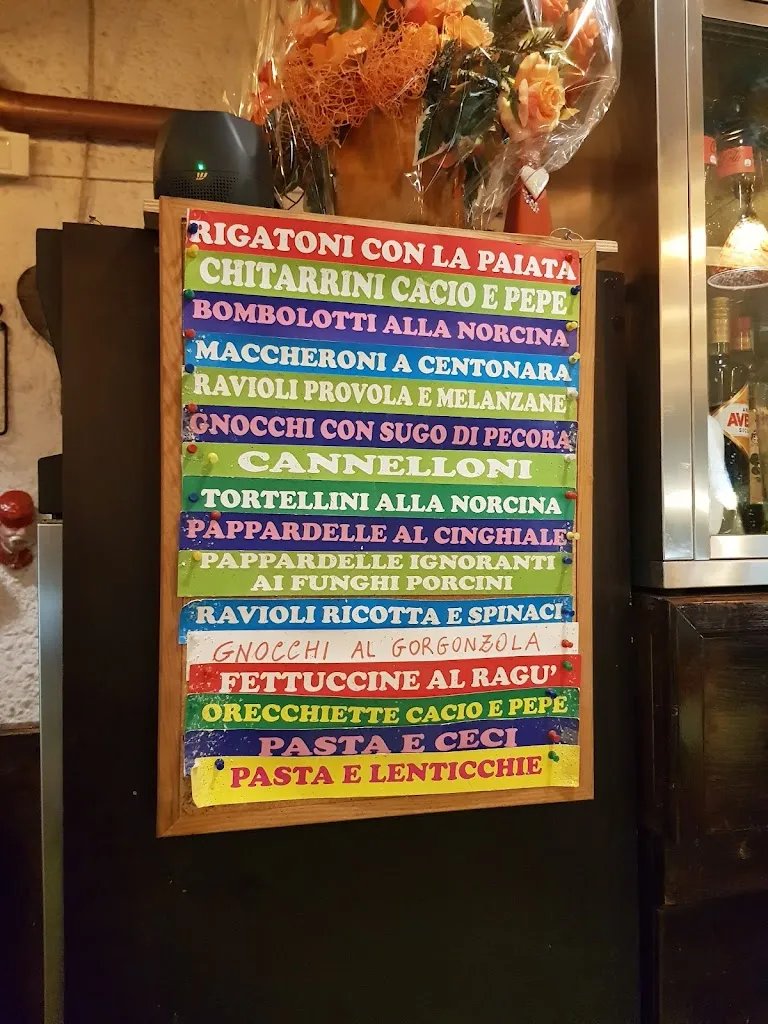 RIGATONI CON LA PAIATA
CHITARRINI CACIO E PEPE
BOMBOLOTTI ALLA NORCINA
MACCHERONI A CENTONARA
RAVIOLI PROVOLA E MELANZANE
GNOCCHI CON SUGO DI PECORA
CANNELLONI
TORTELLINI ALLA NORCINA
PAPPARDELLE AL CINGHIALE
PAPPARDELLE IGNORANTI
AI FUNGHI PORCINI
RAVIOLI RICOTTA E SPINACI
GNOCCHI AL GORGONZOLA
FETTUCCINE AL RAGU'
ORECCHIETTE CACIO E PEPE
PASTA E CECI
PASTA E LENTICCHIE